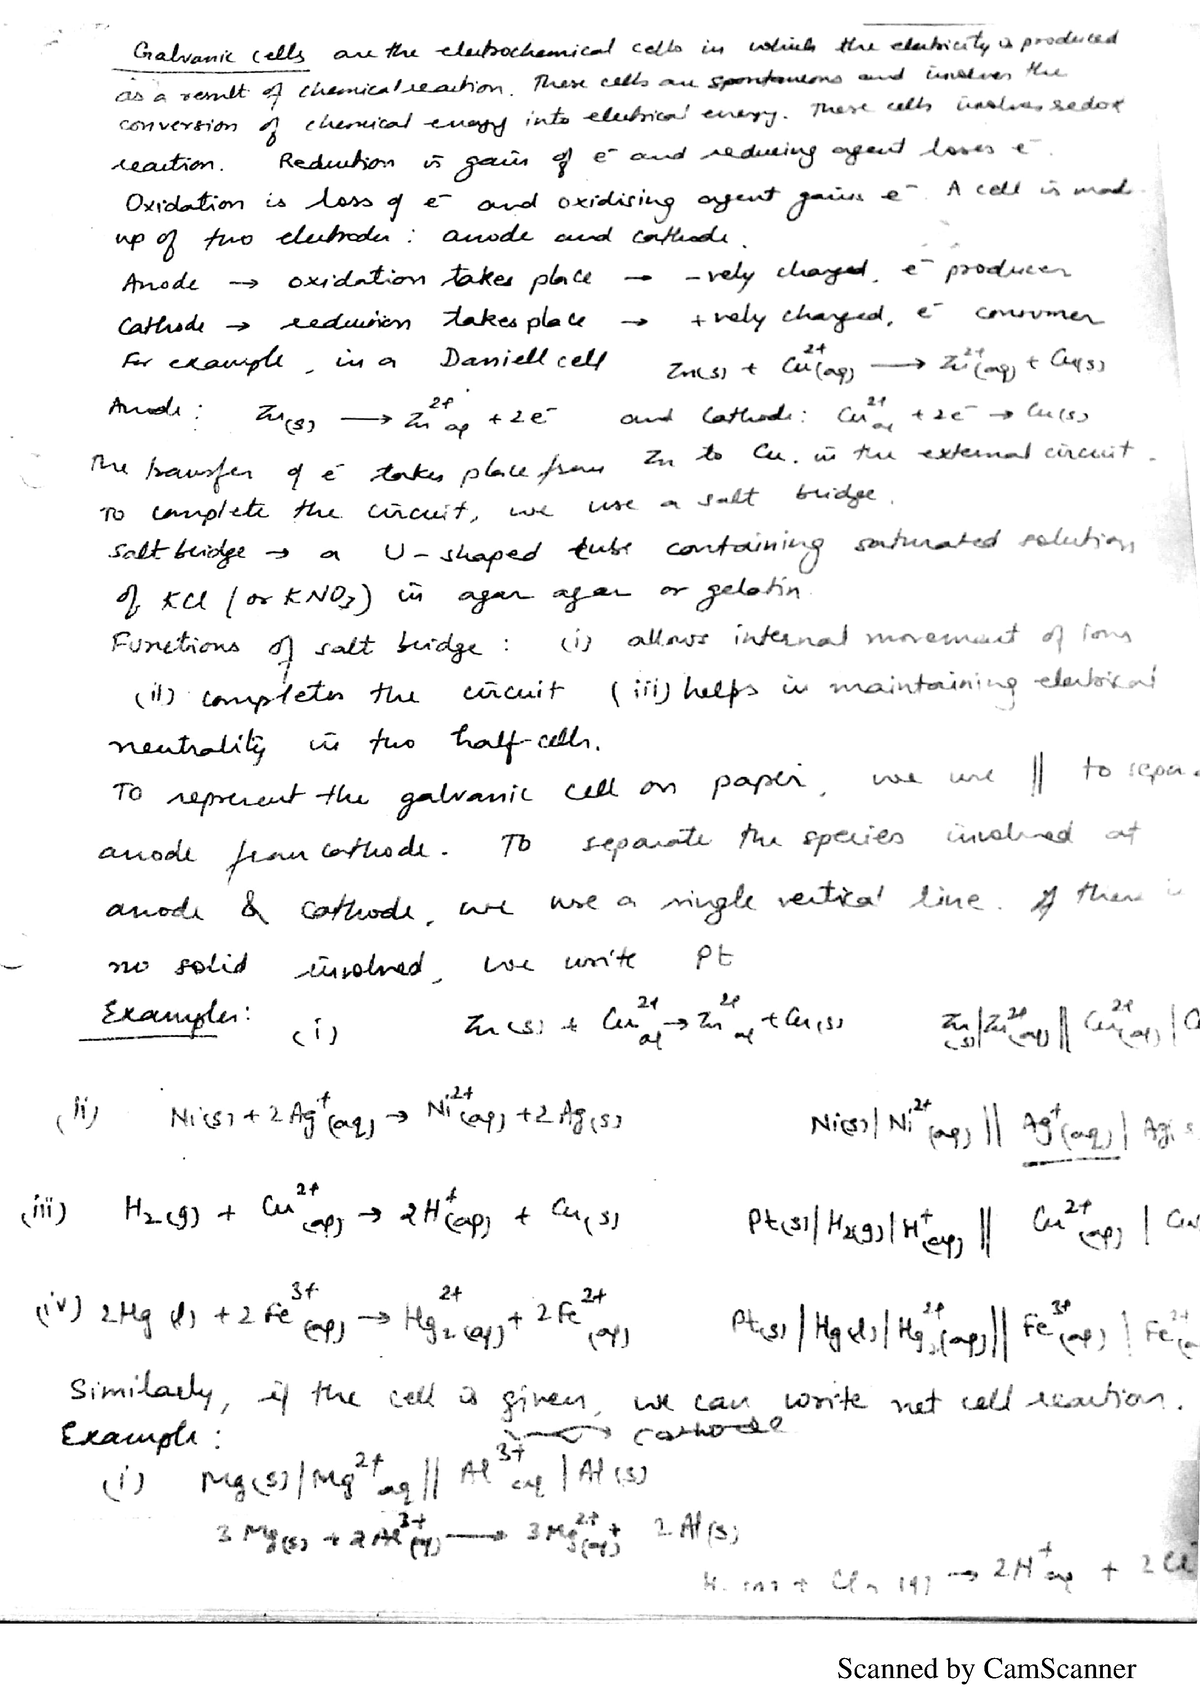 Galvanic cells are the electrochemical cells in which the electricity is produced
as a result of chemical reaction. These cells are spontaneous and involves the
conversion of chemical energy into electrical energy. These cells involves redox
reaction. Reduction is gain of e⁻ and reducing agent loses e⁻.
Oxidation is loss of e⁻ and oxidising agent gains e⁻. A cell is mad
up of two electrodes : anode and cathode.
Anode → oxidation takes place → -vely charged, e⁻ producer
Cathode → reduction takes place → +vely charged, e⁻ consumer
For example, in a Daniell cell Zn(s) + Cu²⁺(aq) → Zn²⁺(aq) + Cu(s)
Anode : Zn(s) → Zn²⁺aq + 2e⁻ and Cathode : Cu²⁺aq + 2e⁻ → Cu(s)
The transfer of e⁻ takes place from Zn to Cu. in the external circuit.
To complete the circuit, we use a salt bridge.
Salt bridge → a U-shaped tube containing saturated solution
of KCl (or KNO₃) in agar agar or gelatin
Functions of salt bridge : (i) allows internal movement of ions
(ii) completes the circuit (iii) helps in maintaining electrical
neutrality in two half-cells.
To represent the galvanic cell on paper, we use || to separ
anode from cathode. To separate the species involved at
anode & cathode, we use a single vertical line. If there i
no solid involved, we write Pt
Examples :
(i) Zn(s) + Cu²⁺aq → Zn²⁺aq + Cu(s) Zn(s)|Zn²⁺(aq) || Cu²⁺(aq) | C
(ii) Ni(s) + 2Ag⁺(aq) → Ni²⁺(aq) + 2Ag(s) Ni(s)|Ni²⁺(aq) || Ag⁺(aq) | Ag(s
(iii) H₂(g) + Cu²⁺(aq) → 2H⁺(aq) + Cu(s) Pt(s)|H₂(g)|H⁺(aq) || Cu²⁺(aq) | Cu
(iv) 2Hg(l) + 2Fe³⁺(aq) → Hg₂²⁺(aq) + 2Fe²⁺(aq) Pt(s)|Hg(l)|Hg₂²⁺(aq)||Fe³⁺(aq) | Fe²⁺(a
Similarly, if the cell is given, we can write net cell reaction.
Example : cathode
(i) Mg(s)|Mg²⁺aq || Al³⁺aq | Al(s)
3Mg(s) + 2Al³⁺(aq) → 3Mg²⁺(aq) + 2Al(s)
→ 2H⁺aq + 2Cl⁻
Scanned by CamScanner